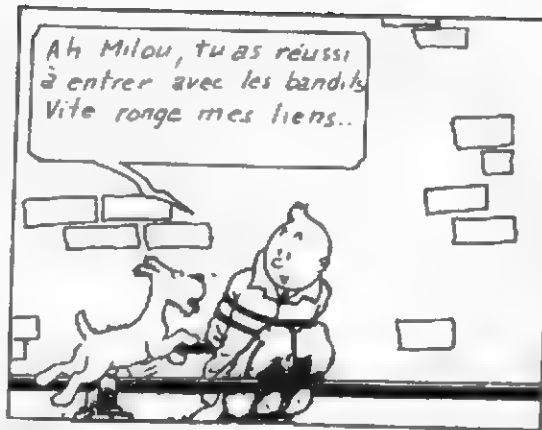 Ah Milou, tu as réussi
à entrer avec les bandits
Vite ronge mes liens..